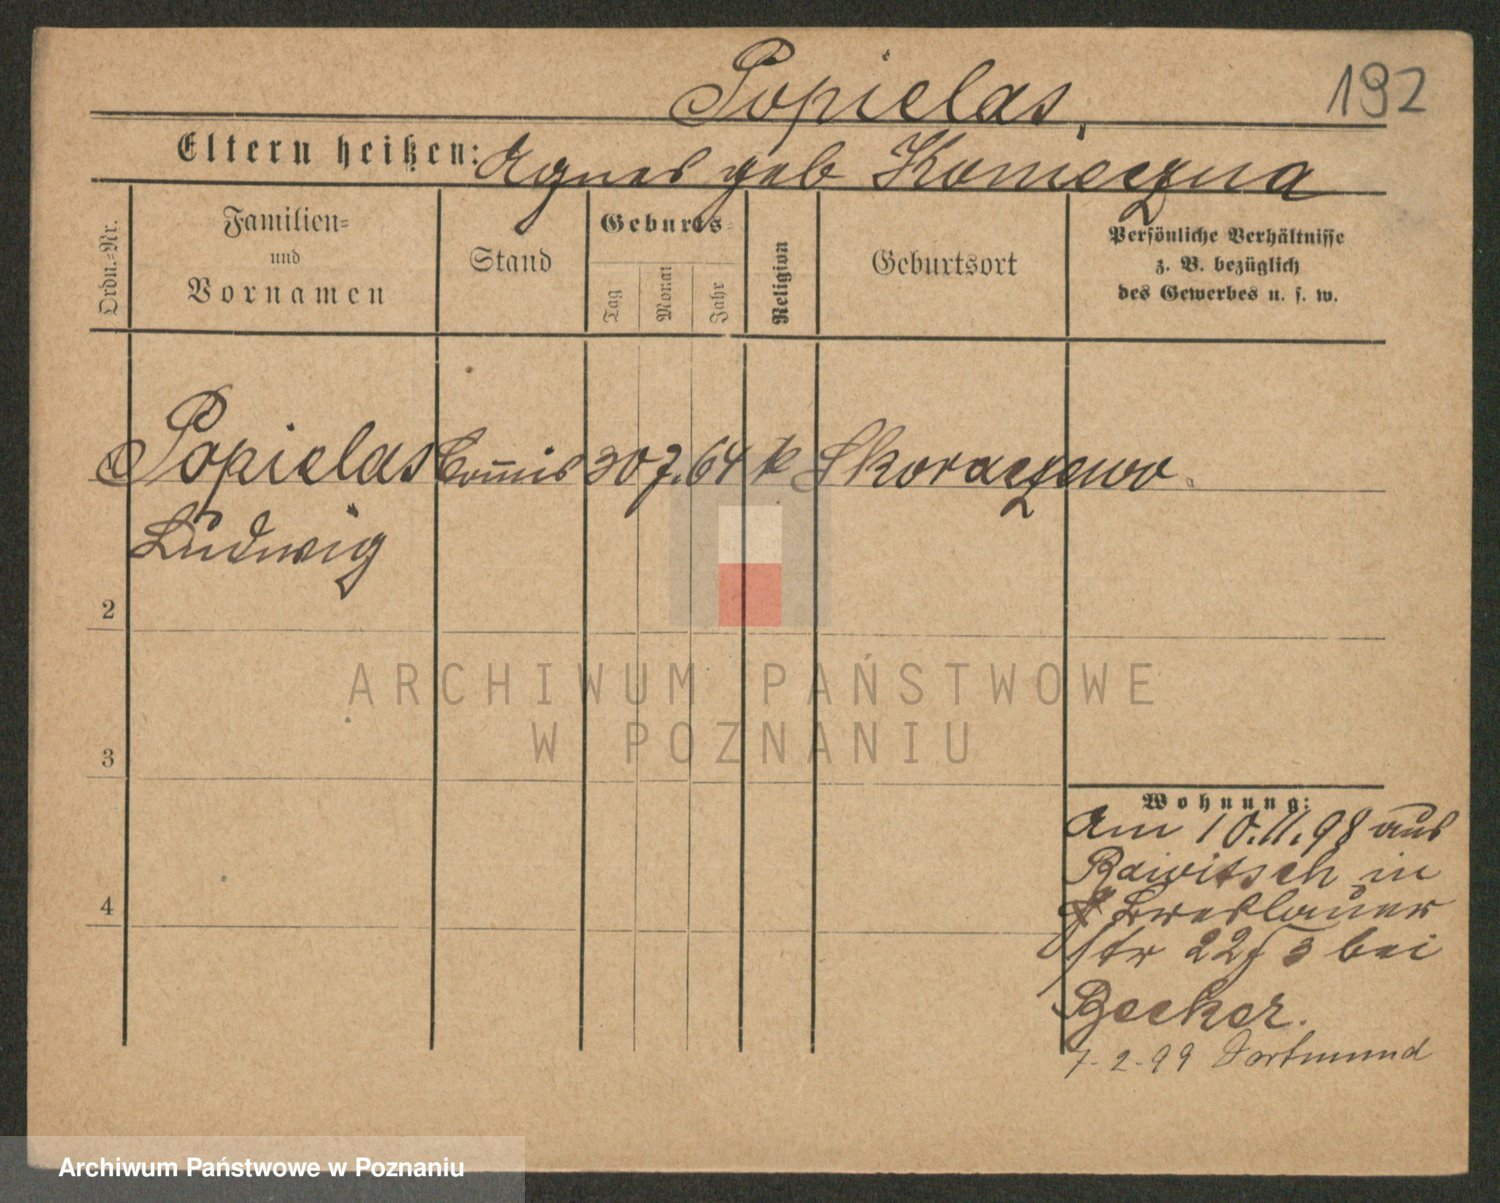 Popielas,
192
Eltern heißen: Agnes geb Konieczna
Ordn.-Nr.
Familien- und Vornamen
Stand
Geburts-
Tag
Monat
Jahr
Religion
Geburtsort
Persönliche Verhältnisse
z. B. bezüglich
des Gewerbes u. s. w.
Popielas Com̅is 30 7. 64 k Skoraczewo.
Ludwig
2
3
4
ARCHIWUM PAŃSTWOWE
W POZNANIU
Wohnung:
Am 10.11.98 aus
Rawitsch in
Breslauer
str 22 bei
Becker.
7-2-99 Dortmund
Archiwum Państwowe w Poznaniu